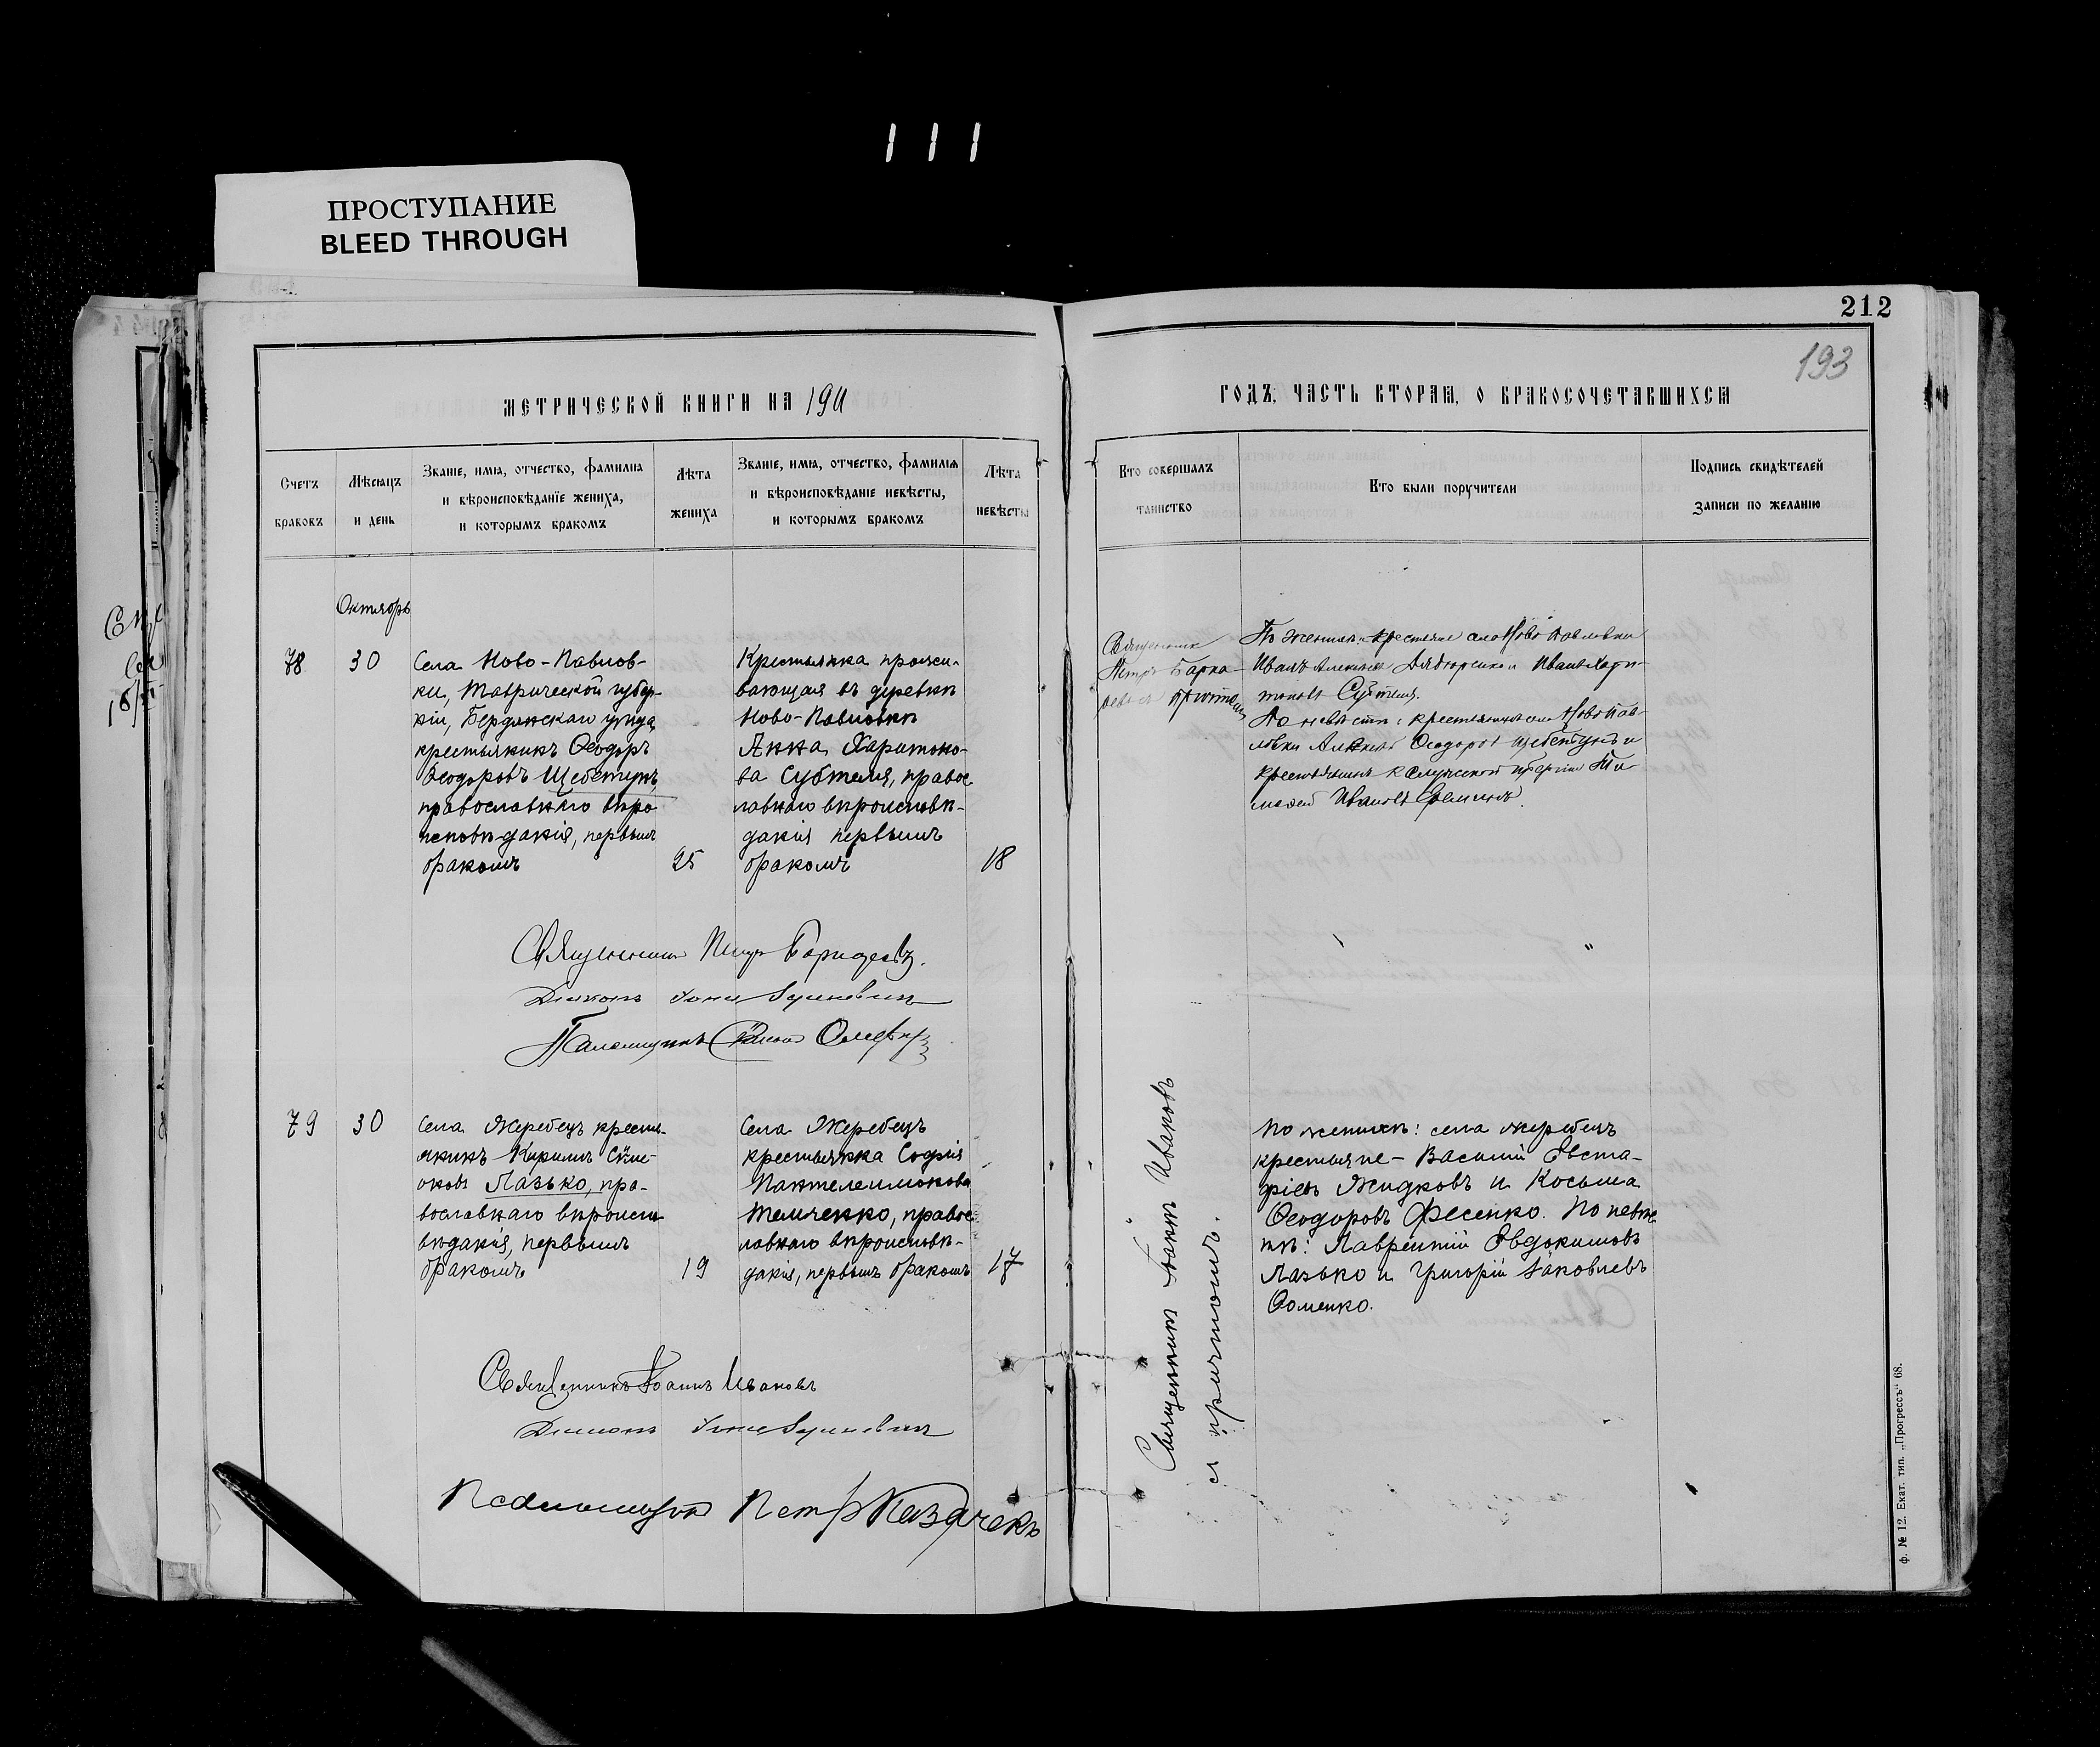 111
ПРОСТУПАНИЕ
BLEED THROUGH
212
193
МЕТРИЧЕСКОЙ КНИГИ НА 1911
ГОДЪ, ЧАСТЬ ВТОРАЯ, О БРАКОСОЧЕТАВШИХСЯ
Счетъ
браковъ
Мѣсяцъ
и день
Званіе, имя, отчество, фамилія
и вѣроисповѣданіе жениха,
и которымъ бракомъ
Лѣта
жениха
Званіе, имя, отчество, фамилія
и вѣроисповѣданіе невѣсты,
и которымъ бракомъ
Лѣта
невѣсты
Кто совершалъ
таинство
Кто были поручители
Подпись свидѣтелей
записи по желанію
Октябрь
78
30
Села Ново-Павлов-
ки, Таврической губер-
ніи, Бердянскаго уѣзда,
крестьянинъ Ѳеодоръ
Ѳеодоровъ Щебетунъ,
православнаго вѣро
исповѣданія, первымъ
бракомъ
25
Крестьянка прожи-
вающая въ деревнѣ
Ново-Павловкѣ
Анна Харитоно-
ва Субтеля, правос
лавнаго вѣроисповѣ-
данія первымъ
бракомъ
18
Священникъ
Петръ
съ причтомъ
По женихѣ: крестьяне села Ново Павловки
Иванъ и Иванъ Хари-
тоновъ Субтеля.
По невѣстѣ: крестьянинъ села Ново Пав-
ловки Ѳеодоровъ Щебетунъ и
крестьянинъ губерніи Ти-
моѳей Ивановъ
Священникъ Петръ
Діаконъ
Псаломщикъ
79
30
Села Жеребецъ кресть-
янинъ Кириллъ Сѵме-
оновъ Лазько, пра-
вославнаго вѣроиспо-
вѣданія, первымъ
бракомъ
19
Села Жеребецъ
крестьянка Софія
Пантелеимонова
Темченко, правос
лавнаго вѣроисповѣ-
данія, первымъ бракомъ
17
Священникъ Іоаннъ Ивановъ
съ причтомъ.
По женихѣ: села Жеребецъ
крестьяне - Василій Евста-
фіевъ Жидковъ и Косьма
Ѳеодоровъ Фесенко. По невѣс
тѣ: Лаврентій Евдокимовъ
Лазько и Григорій Іаковлевъ
Ѳоменко.
Священникъ Іоаннъ Ивановъ
Діаконъ
Псаломщикъ Петръ Казачекъ
ф. № 12. Екат. тип. „Прогрессъ“ 68.